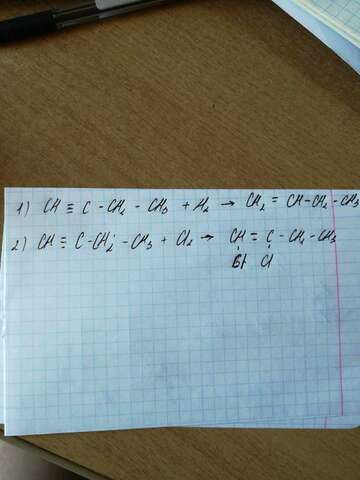 1) CH ≡ C - CH₂ - CH₃ + H₂ → CH₂ = CH - CH₂ - CH₃
2) CH ≡ C - CH₂ - CH₃ + Cl₂ → CH = C - CH₂ - CH₃
Cl Cl